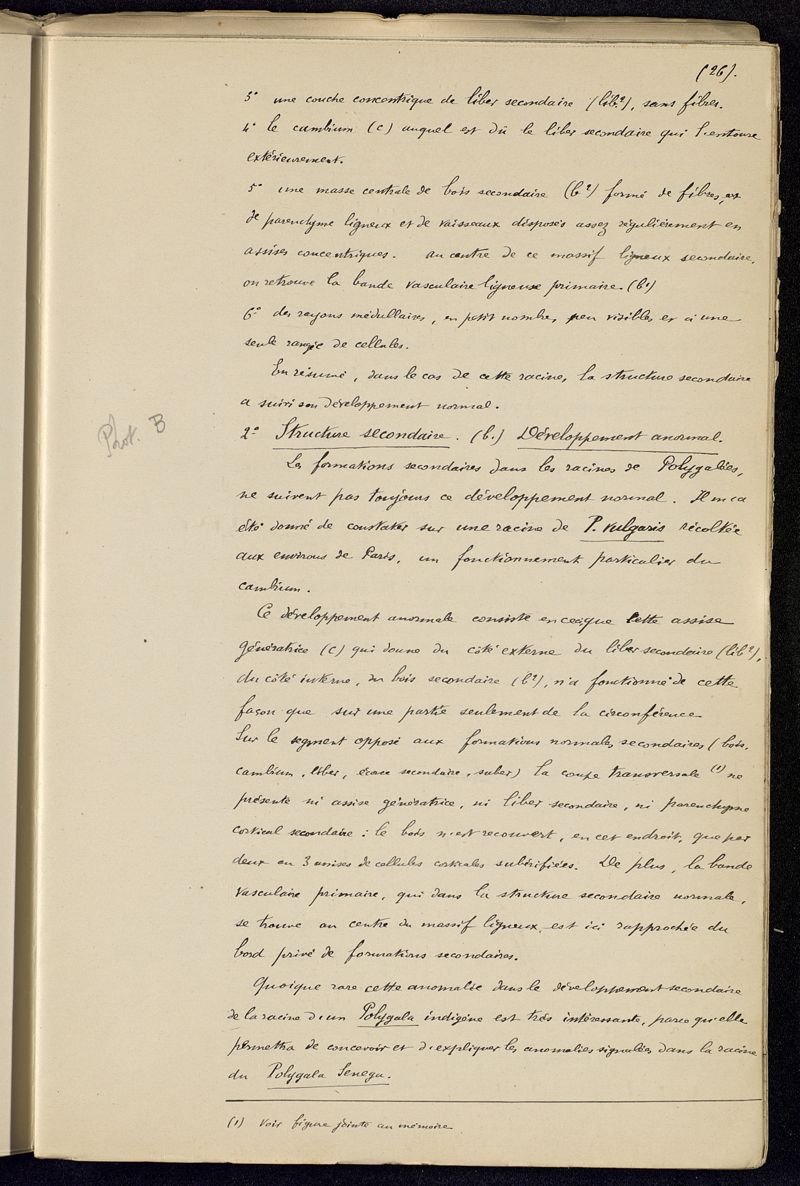 (26).
3° une couche concentrique de liber secondaire (lib²), sans fibres.
4° le cambium (c) auquel est dû le liber secondaire qui l'entoure
extérieurement.
5° une masse centrale de bois secondaire (b²) formé de fibres, et
de parenchyme ligneux et de vaisseaux disposés assez régulièrement en
assises concentriques. Au centre de ce massif ligneux secondaire,
on retrouve la bande vasculaire ligneuse primaire (b¹)
6° des rayons médullaires, en petit nombre, peu visibles et à une
seule rangée de cellules.
En résumé, dans le cas de cette racine, la structure secondaire
a suivi son développement normal.
Phot. B
2° Structure secondaire. (b.) Développement anormal.
Les formations secondaires dans les racines de Polygalées,
ne suivent pas toujours ce développement normal. Il m'a
été donné de constater sur une racine de P. vulgaris récoltée
aux environs de Paris, un fonctionnement particulier du
cambium.
Ce développement anormale consiste en ce que cette assise
génératrice (c) qui donne du côté externe du liber secondaire (lib²),
du côté interne, du bois secondaire (b²), n'a fonctionné de cette
façon que sur une partie seulement de la circonférence
Sur le segment opposé aux formations normales secondaires (bois,
cambium, liber, écorce secondaire, suber) la coupe transversale (1) ne
présente ni assise génératrice, ni liber secondaire, ni parenchyme
cortical secondaire : le bois n'est recouvert, en cet endroit, que par
deux ou 3 assises de cellules corticales subérifiées. De plus, la bande
vasculaire primaire, qui dans la structure secondaire normale,
se trouve au centre du massif ligneux, est ici rapprochée du
bord privé de formations secondaires.
Quoique rare cette anomalie dans le développement secondaire
de la racine d'un Polygala indigène est très intéressante, parce qu'elle
permettra de concevoir et d'expliquer les anomalies signalées dans la racine
du Polygala Senega.
(1) Voir figure jointe au mémoire